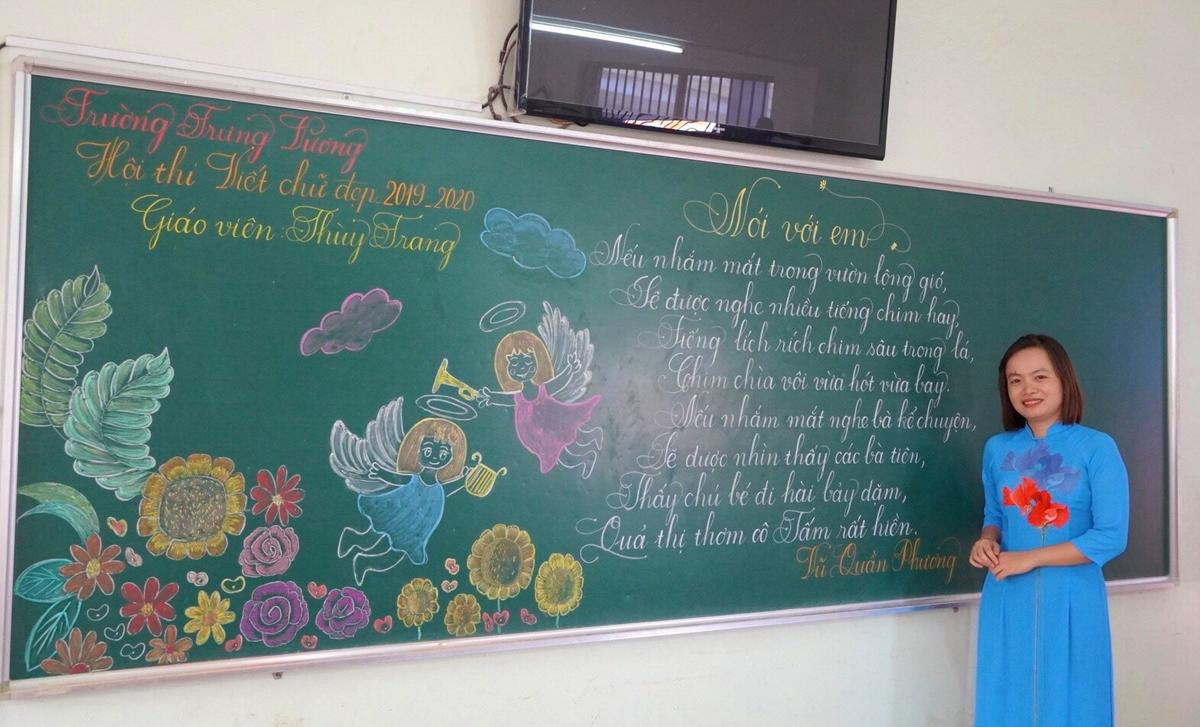 Trường Trưng Vương
Hội thi Viết chữ đẹp 2019-2020
Giáo viên: Thùy Trang
Nói với em
Nếu nhắm mắt trong vườn lộng gió,
Sẽ được nghe nhiều tiếng chim hay,
Tiếng lích rích chim sâu trong lá,
Chim chìa vôi vừa hót vừa bay.
Nếu nhắm mắt nghe bà kể chuyện,
Sẽ được nhìn thấy các bà tiên,
Thấy chú bé đi hài bảy dặm,
Quả thị thơm cô Tấm rất hiền.
Vũ Quần Phương